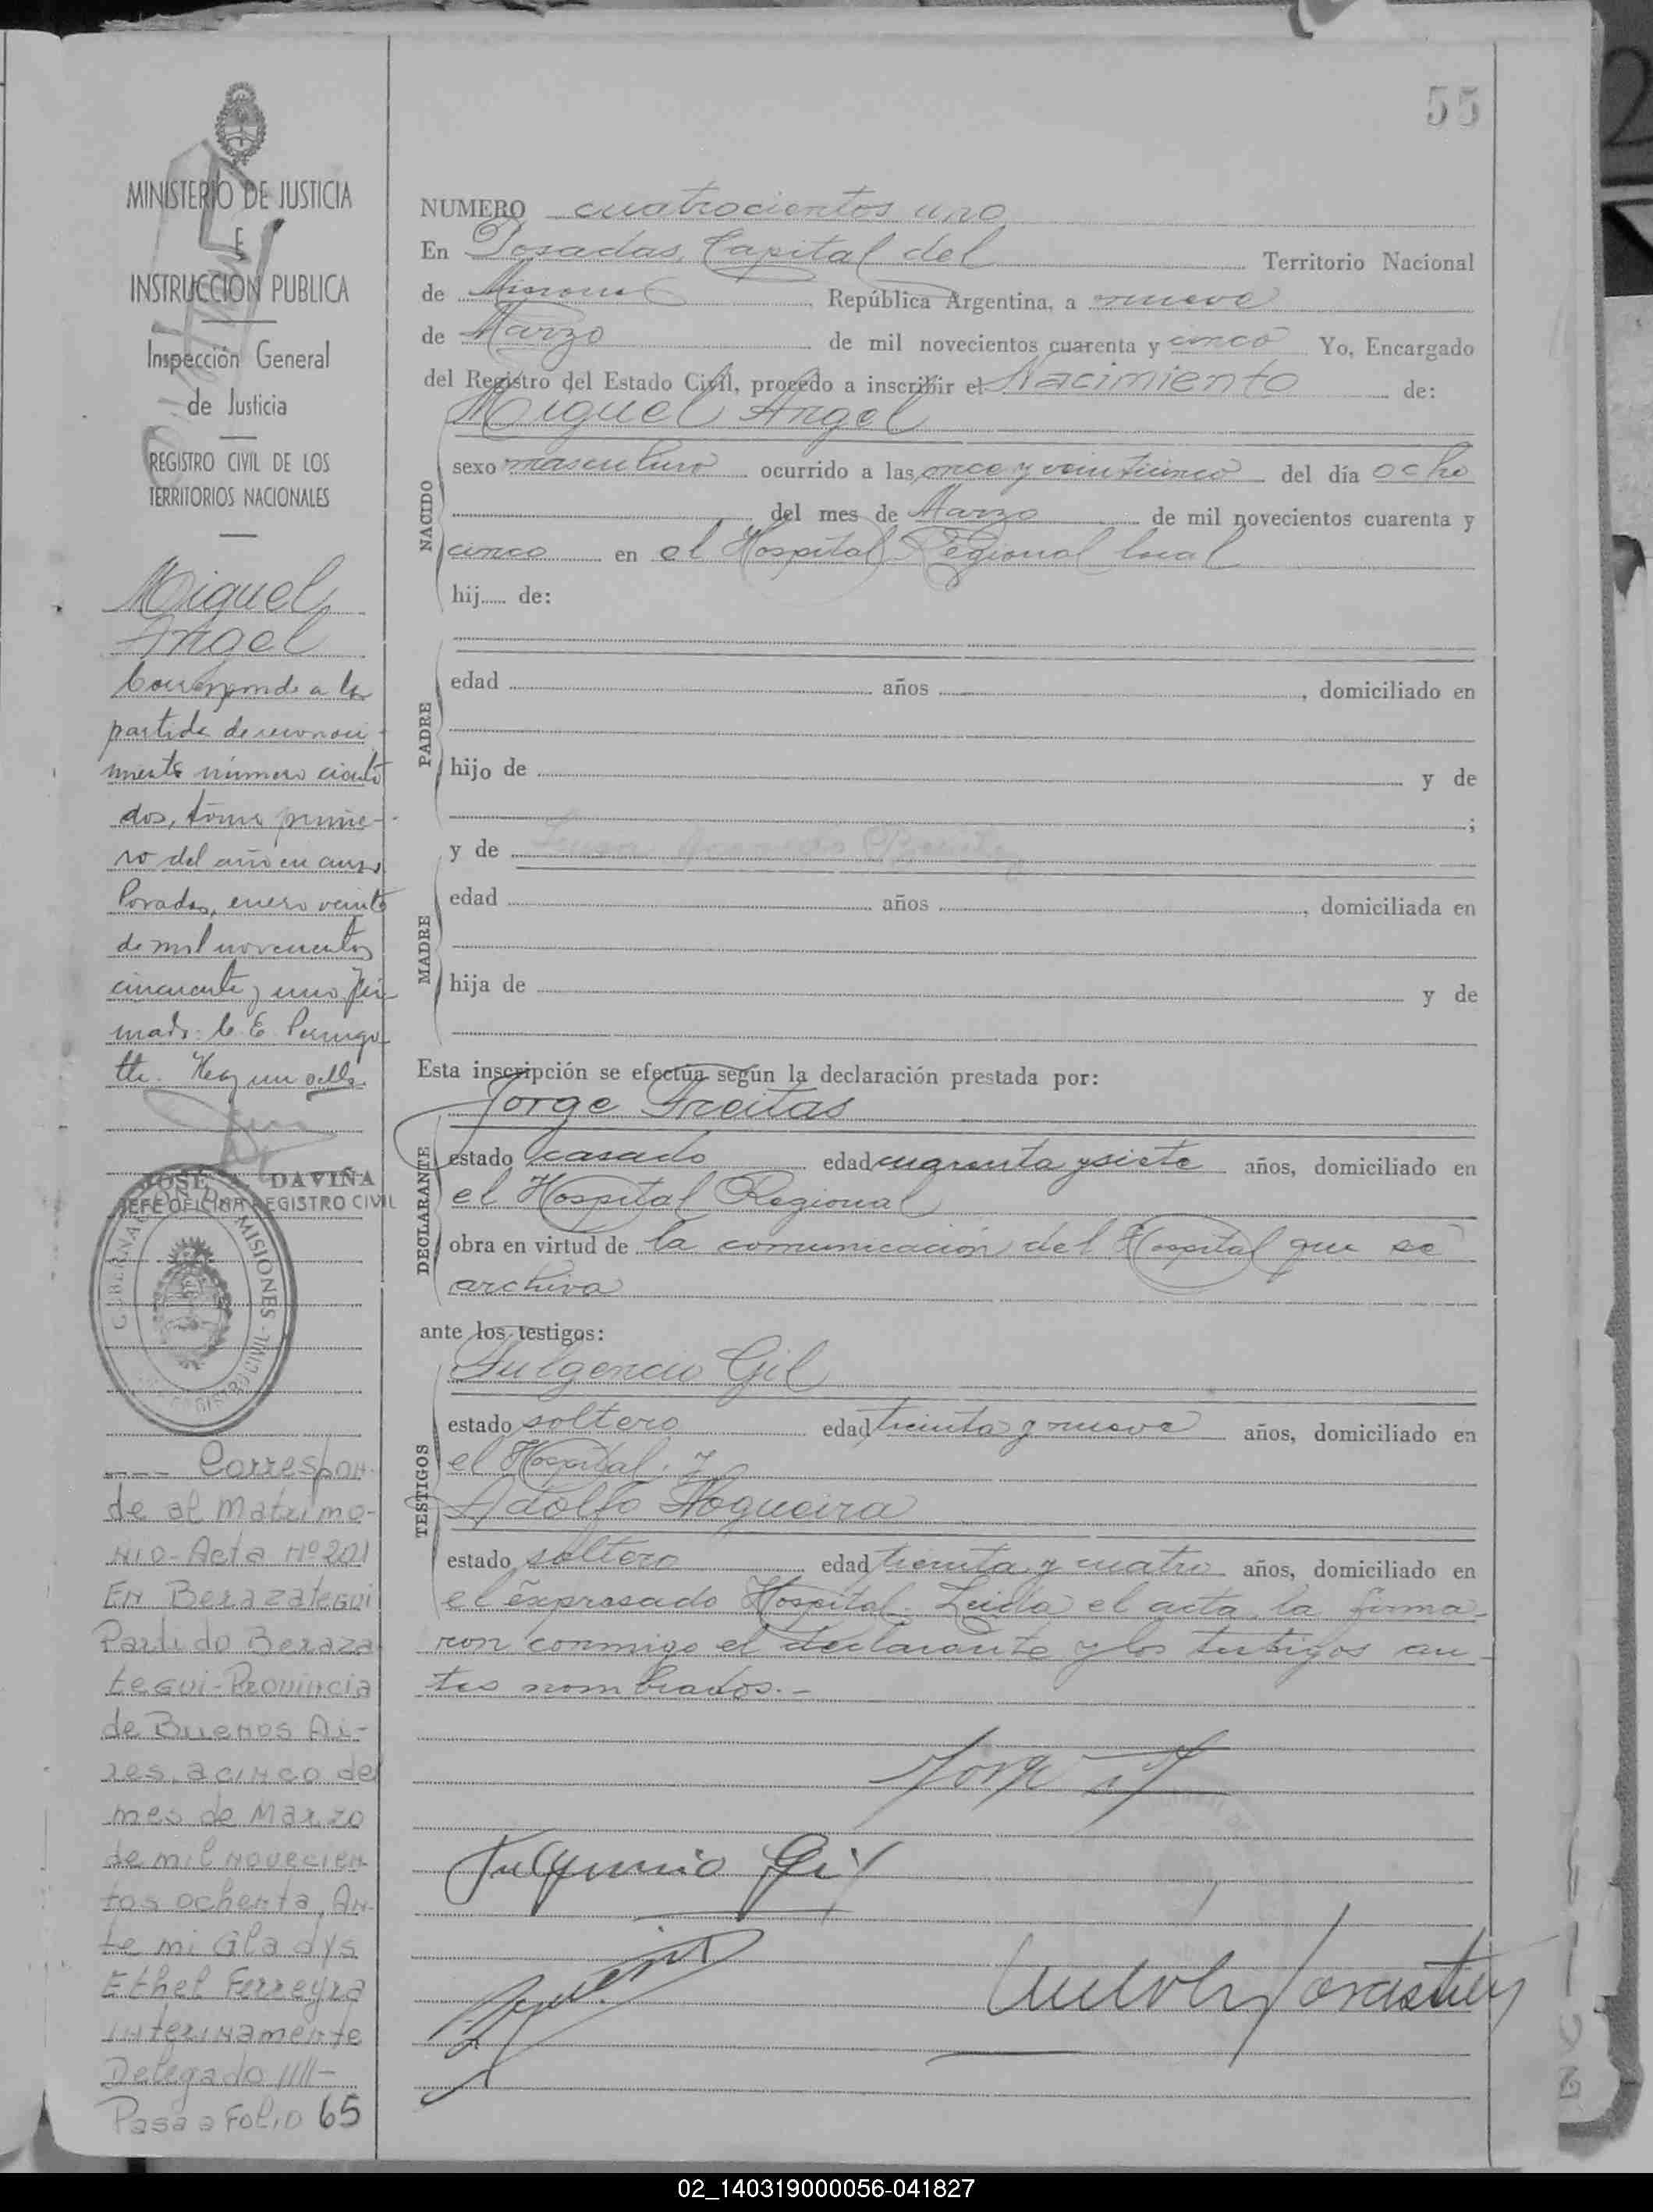 MINISTERIO DE JUSTICIA
E
INSTRUCCION PUBLICA
Inspección General
de Justicia
REGISTRO CIVIL DE LOS
TERRITORIOS NACIONALES
Miguel
Angel
Corresponde a la
partida de reconoci-
miento número ciento
dos, tomo prime-
ro del año en curso
Posadas, enero veinte
de mil novecientos
cincuenta y uno Fir-
mado: C. E.
Hay un sello
JOSE DAVIÑA
JEFE OFICINA REGISTRO CIVIL
MISIONES
---- Correspon-
de al Matrimo-
nio-Acta Nº 201
En Berazategui
Partido Beraza
tegui-Provincia
de Buenos Ai-
res, a cinco del
mes de Marzo
de mil novecien-
tos ochenta, An-
te mi Gladys
Ethel Ferreyra
interinamente
Delegado IIII-
Pasa a Folio 65
55
NUMERO cuatrocientos uno
En Posadas, Capital del Territorio Nacional
de Misiones República Argentina, a nueve
de Marzo de mil novecientos cuarenta y cinco Yo, Encargado
del Registro del Estado Civil, procedo a inscribir el Nacimiento de:
Miguel Angel
NACIDO
sexo masculino ocurrido a las once y veinticinco del día ocho
del mes de Marzo de mil novecientos cuarenta y
cinco en el Hospital Regional local
hij..... de:
PADRE
edad años , domiciliado en
hijo de y de
;
y de
MADRE
edad años , domiciliada en
hija de y de
Esta inscripción se efectúa según la declaración prestada por:
Jorge Freitas
DECLARANTE
estado casado edad cuarenta y siete años, domiciliado en
el Hospital Regional
obra en virtud de la comunicación del Hospital que se
archiva
ante los testigos:
Fulgencio Gil
TESTIGOS
estado soltero edad treinta y nueve años, domiciliado en
el Hospital. y
Adolfo Nogueira
estado soltero edad treinta y cuatro años, domiciliado en
el expresado Hospital. Leida el acta, la firma-
ron conmigo el declarante y los testigos an-
tes nombrados.-
Jorge
Fulgencio Gil
02_140319000056-041827